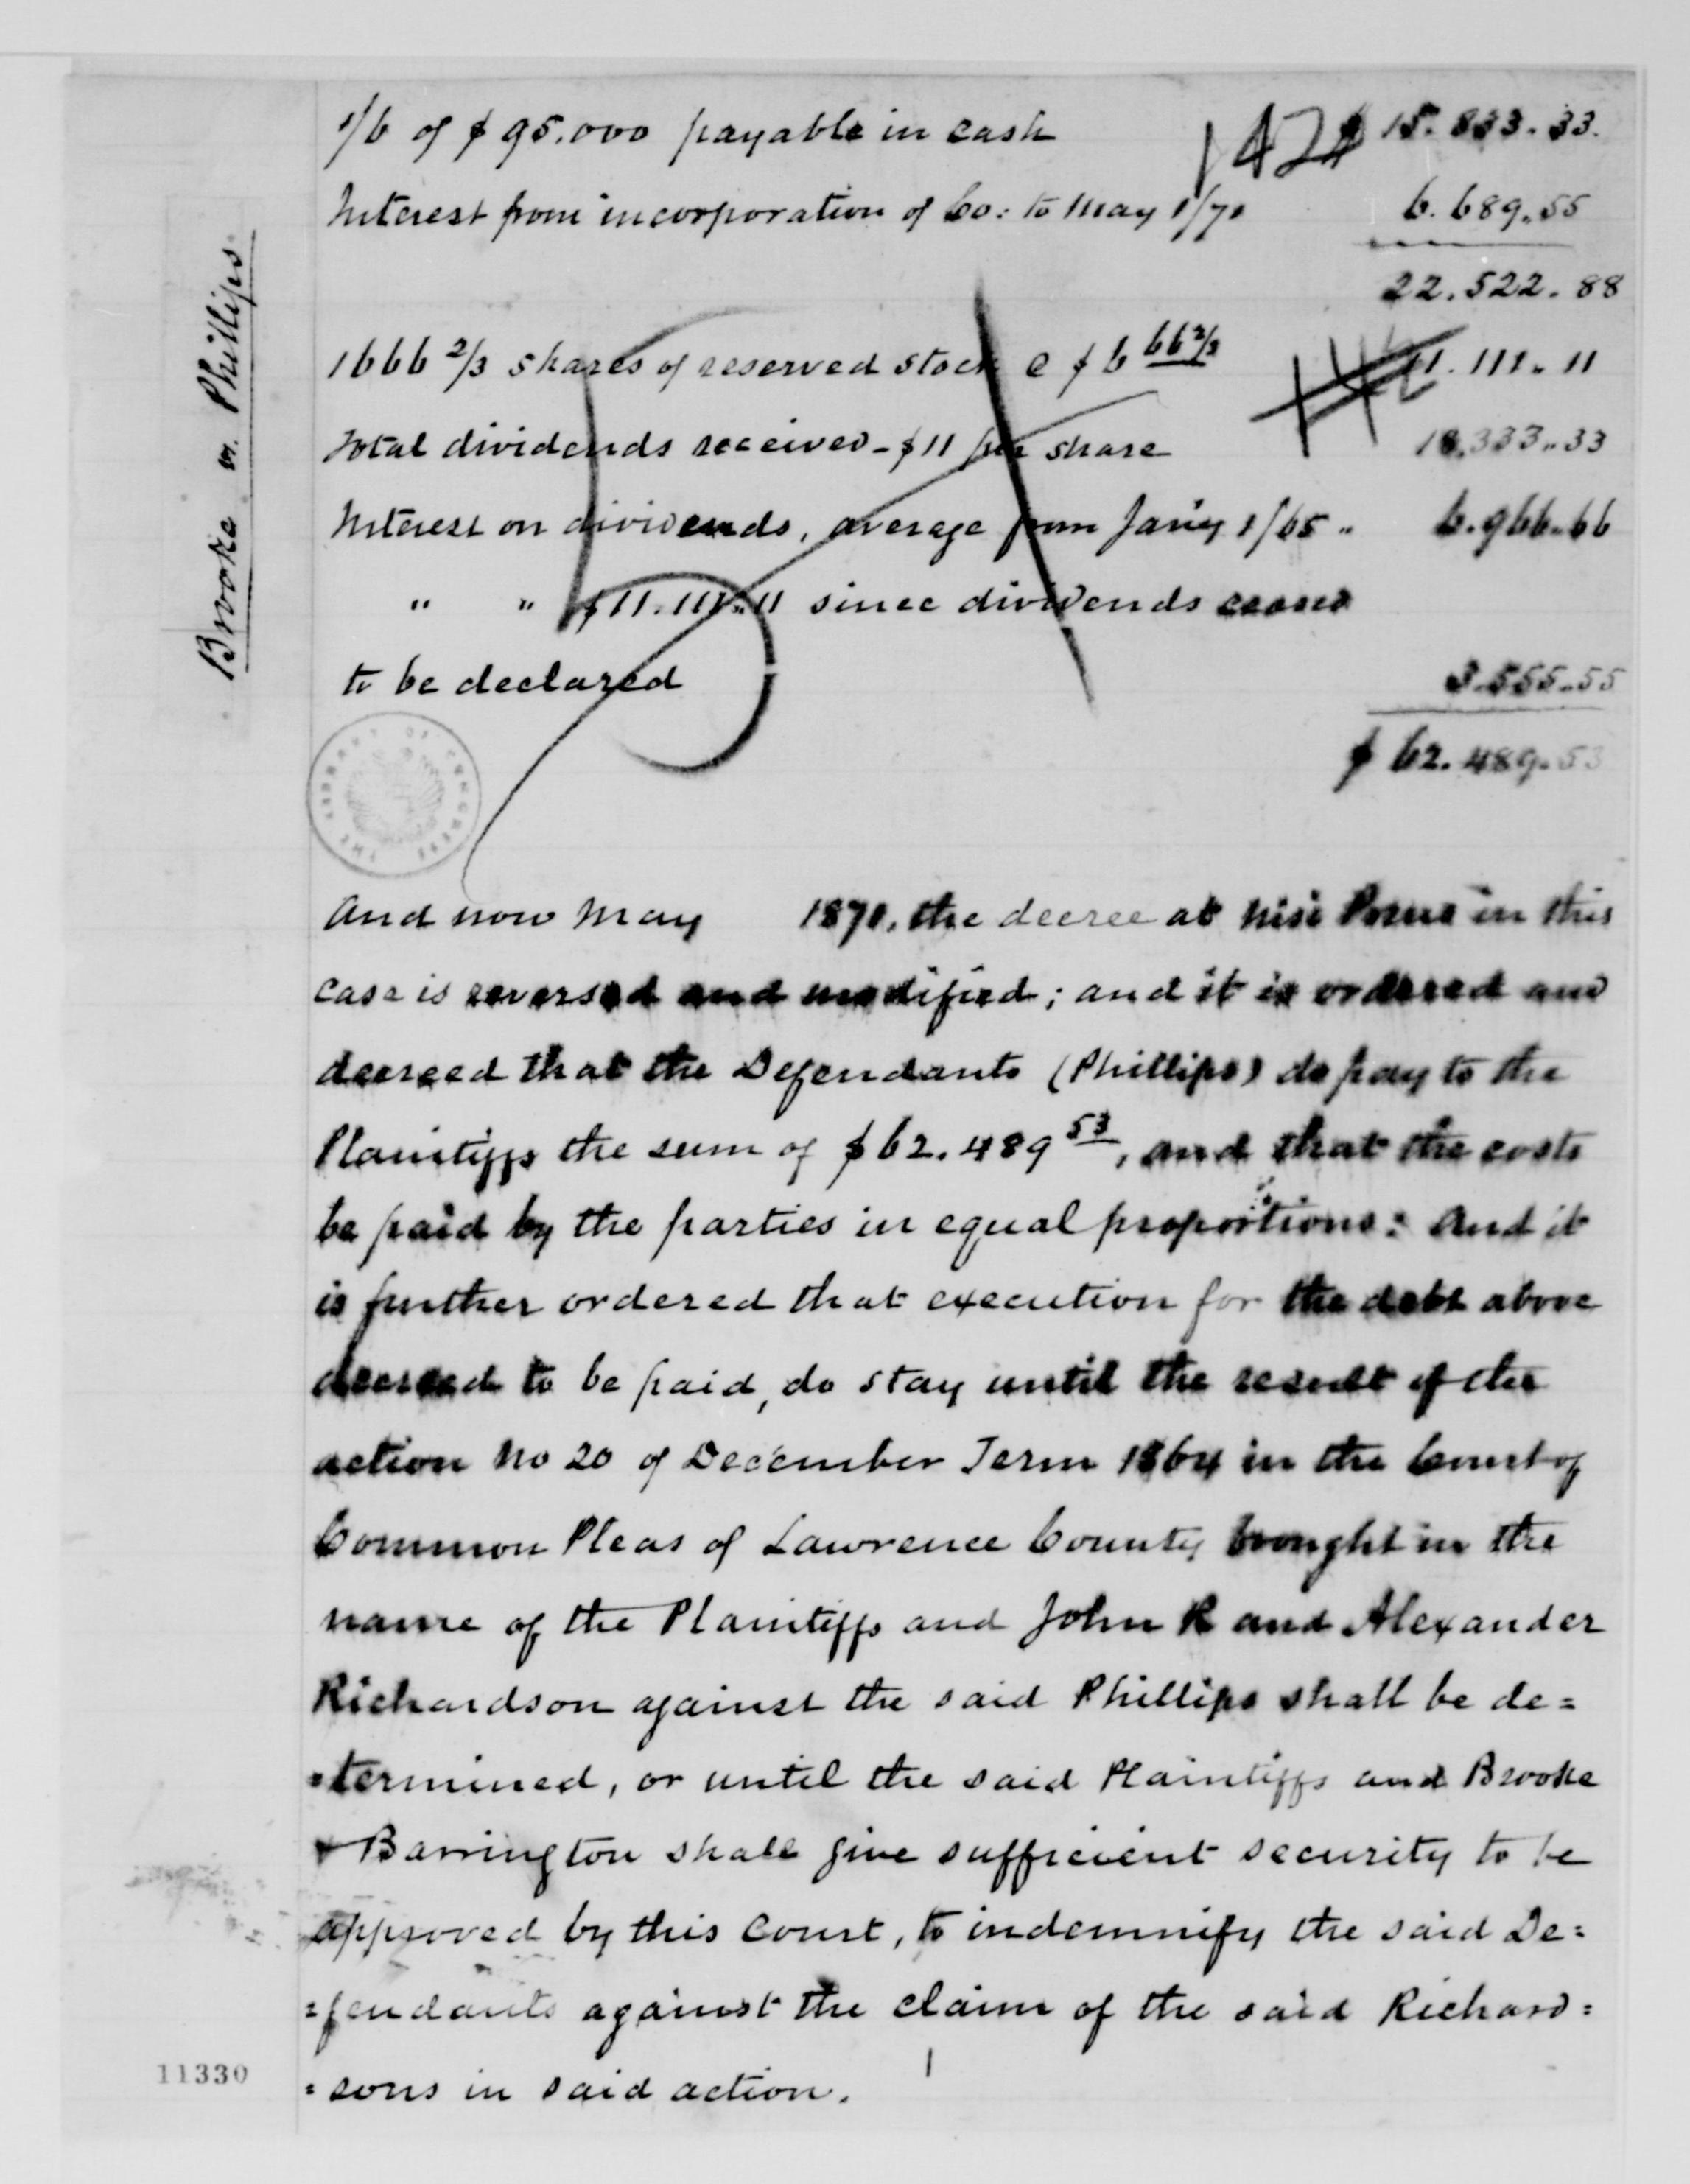 1/6 of $95.000 payable in cash $15.833.33.
142
Interest from incorporation of Co: to May 1/70 6.689.55
22.522.88
1666 2/3 shares of reserved stock @ $6 66 2/3 11.111.11
Total dividends received - $11 per share 18.333.33
Interest on dividends, average from Jan'y 1/65 " 6.966.66
" " $11.111.11 since dividends ceased
to be declared 3.555.55
$62.489.53
Brooke vs. Phillips
THE LIBRARY OF CONGRESS
And now May 1870, the decree at Nisi Prius in this
case is reversed and modified; and it is ordered and
decreed that the Defendants (Phillips) do pay to the
Plaintiffs the sum of $62.489 53, and that the costs
be paid by the parties in equal proportions: And it
is further ordered that execution for the debt above
decreed to be paid, do stay until the result of the
action No 20 of December Term 1864 in the Court of
Common Pleas of Lawrence County brought in the
name of the Plaintiffs and John R and Alexander
Richardson against the said Phillips shall be de=
=termined, or until the said Plaintiffs and Brooke
& Barrington shall give sufficient security to be
approved by this Court, to indemnify the said De=
=fendants against the claim of the said Richard=
=sons in said action.
11330